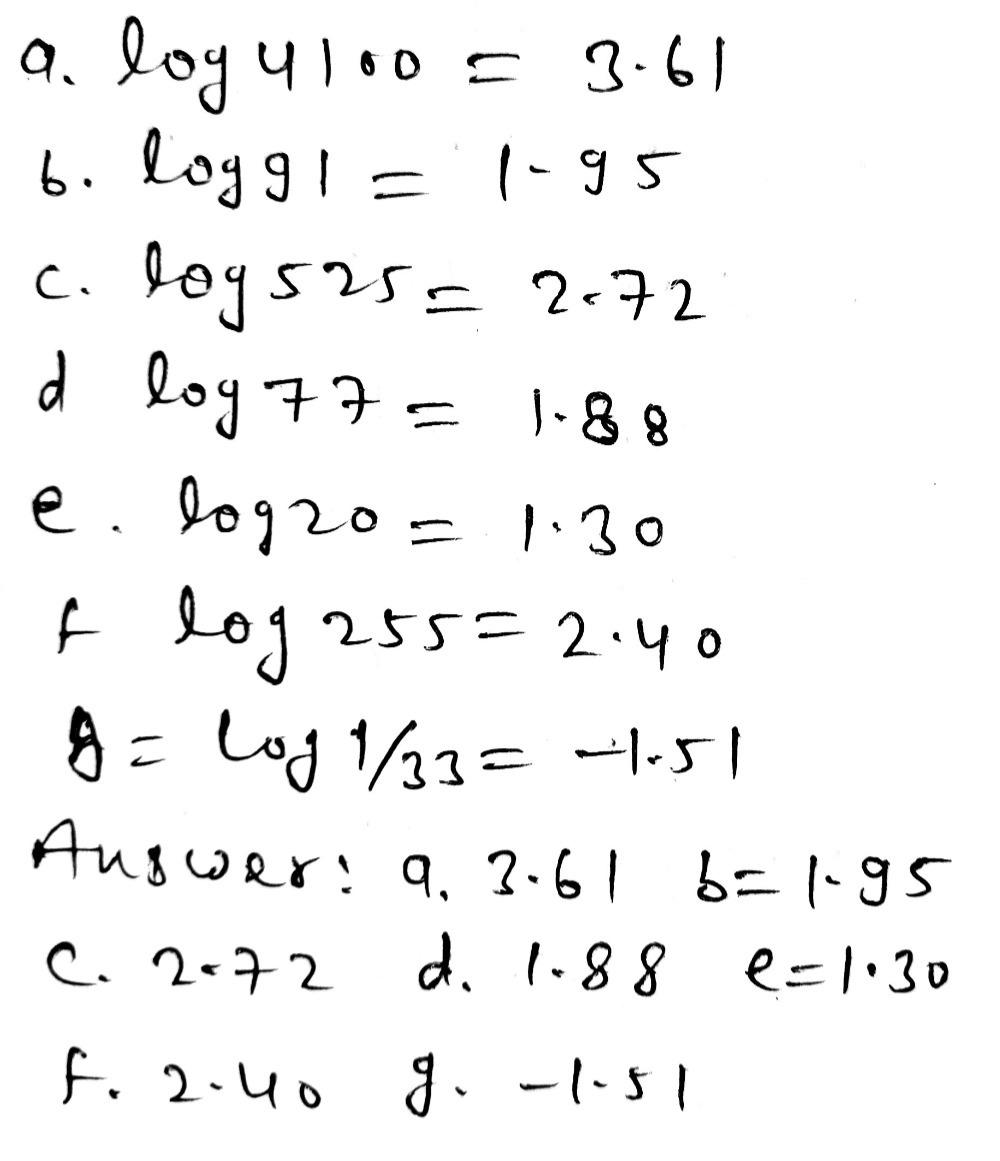 a. log 4100 = 3.61
b. log 91 = 1.95
c. log 525 = 2.72
d log 77 = 1.88
e. log 20 = 1.30
f log 255 = 2.40
g = log 1/33 = -1.51
Answer: a. 3.61 b = 1.95
c. 2.72 d. 1.88 e = 1.30
f. 2.40 g. -1.51